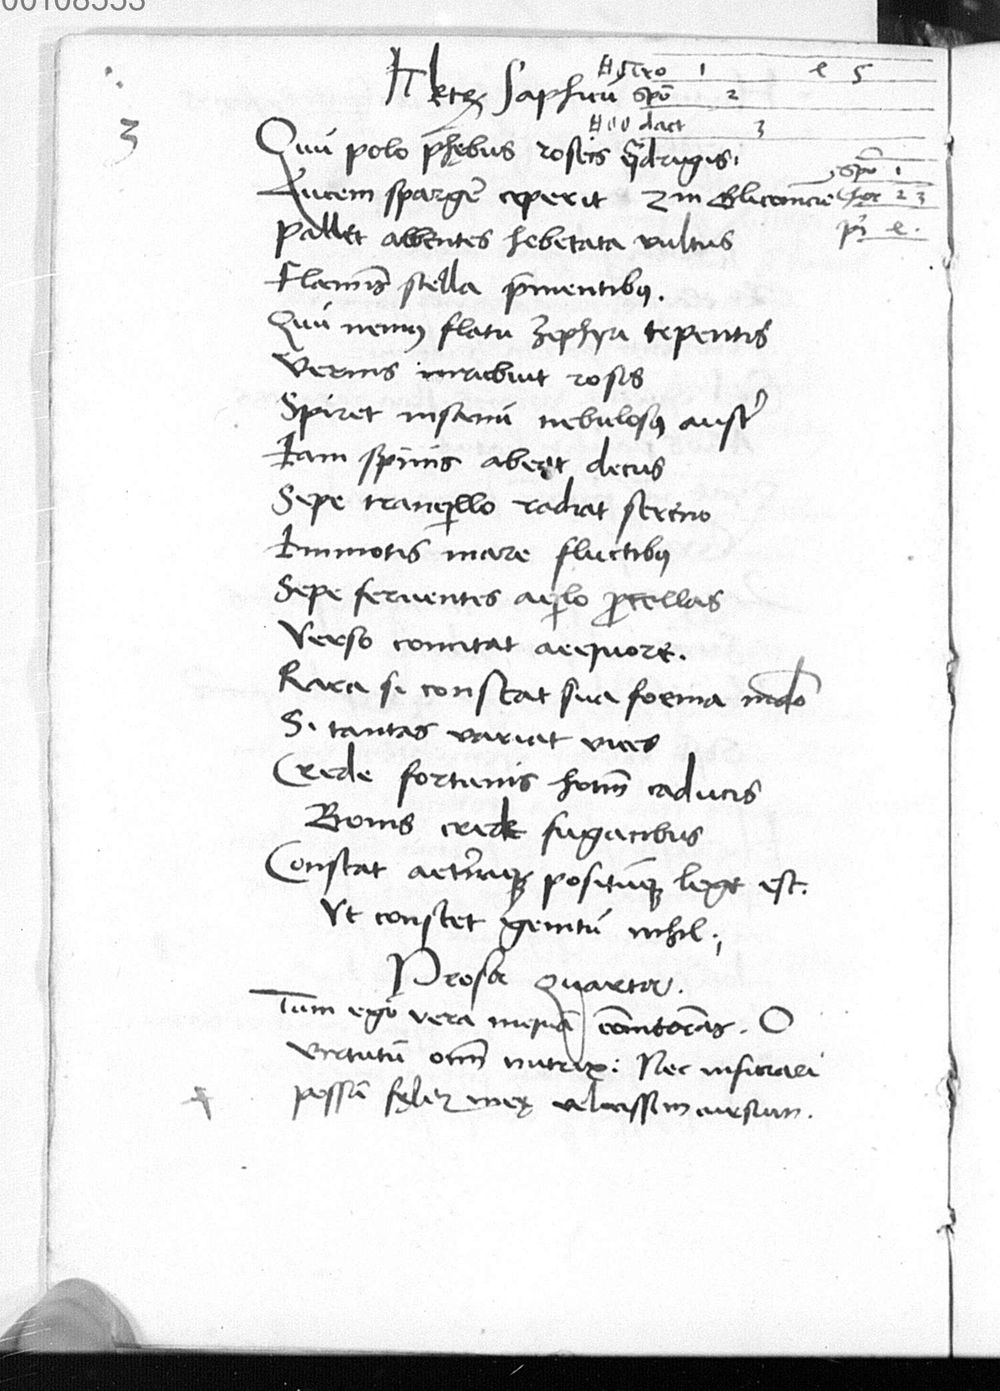 00108553
Metrū Saphicū
tro 1 e 5
spō 2
dact 3
3
Quū polo phębus roseis q̄drigis
Lucem spargēr ceperit 2m Gliconicū
spō 1
chor 2 3
pi e.
Pallet albentes hebetata vultus
Flam̄is stella p̄mentibꝰ.
Quū nemꝰ flatu Zephyri tepentis
Vernis inrubuit rosis
Spiret insanū nebulosꝰ aust̄
Iam spinis abeat decus
Sepe tranq̓llo radiat sereno
Immotis mare fluctibꝰ
Sepe feruentes aq̓lo ꝓcellas
Verso concitat aequore.
Rara si constat sua forma mūdo
Si tantas variat vices
Crede fortunis hoīm caducis
Bonis crede fugacibus
Constat aet̄naqꝫ positūqꝫ lege est.
Vt constet genitū nihil.,
Prosa quarta.
Tum ego vera inquā com̄emoras. O
virtutū oīm nutrix: Nec infitiari
possū felicitatis meę velocissimū cursum.